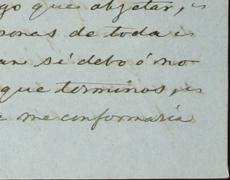 go que objetar, 
onas de toda
an si debo ó nó
que terminos,
me conformaria